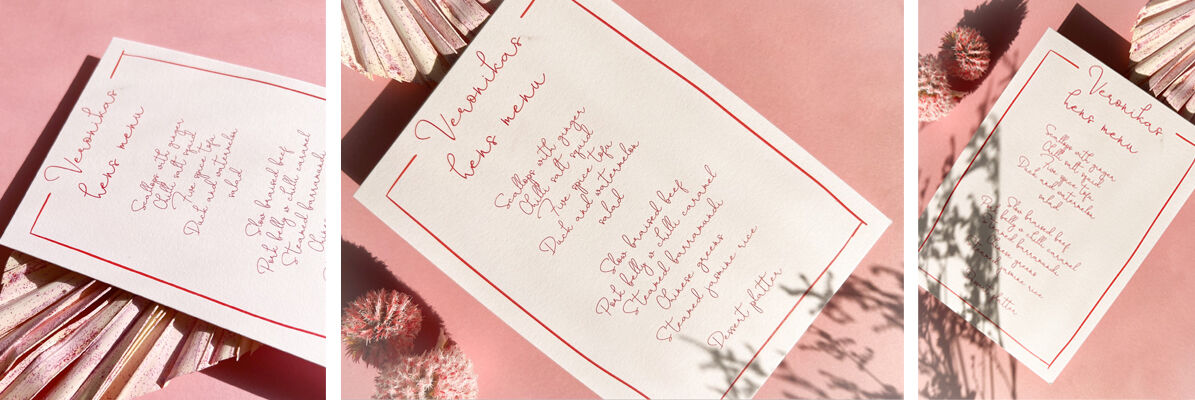 Veronikas
hens menu
Scallops with ginger
Chilli salt squid
Five spice tofu
Duck and watermelon
salad
Slow braised beef
Pork belly w chilli caramel
Steamed barramundi
Veronikas
hens menu
Scallops with ginger
Chilli salt squid
Five spice tofu
Duck and watermelon
salad
Slow braised beef
Pork belly w chilli caramel
Steamed barramundi
Chinese greens
Steamed jasmine rice
Dessert platter
Veronikas
hens menu
Scallops with ginger
Chilli salt squid
Five spice tofu
Duck and watermelon
salad
Slow braised beef
Pork belly w chilli caramel
Steamed barramundi
Chinese greens
Steamed jasmine rice
Dessert platter